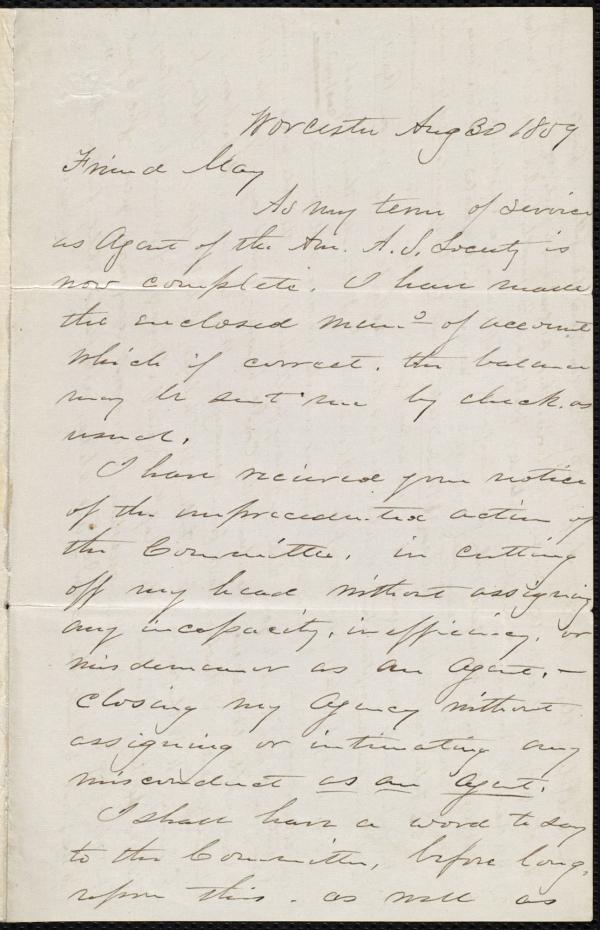 Worcester Aug 30 1859
Friend May
As my term of service
as Agent of the Am. A. S. Society is
now complete. I have made
the enclosed mem.o of account
which if correct. the balance
may be sent me by check. as
usual.
I have recieved your notice
of the unprecedented action of
the Committee. in cutting
off my head without assigning
any incapacity, inefficiency, or
misdemeanor as an Agent, –
closing my Agency without
assigning or intimating any
misconduct as an Agent.
I shall have a word to say
to the Committee, before long,
upon this. as well as